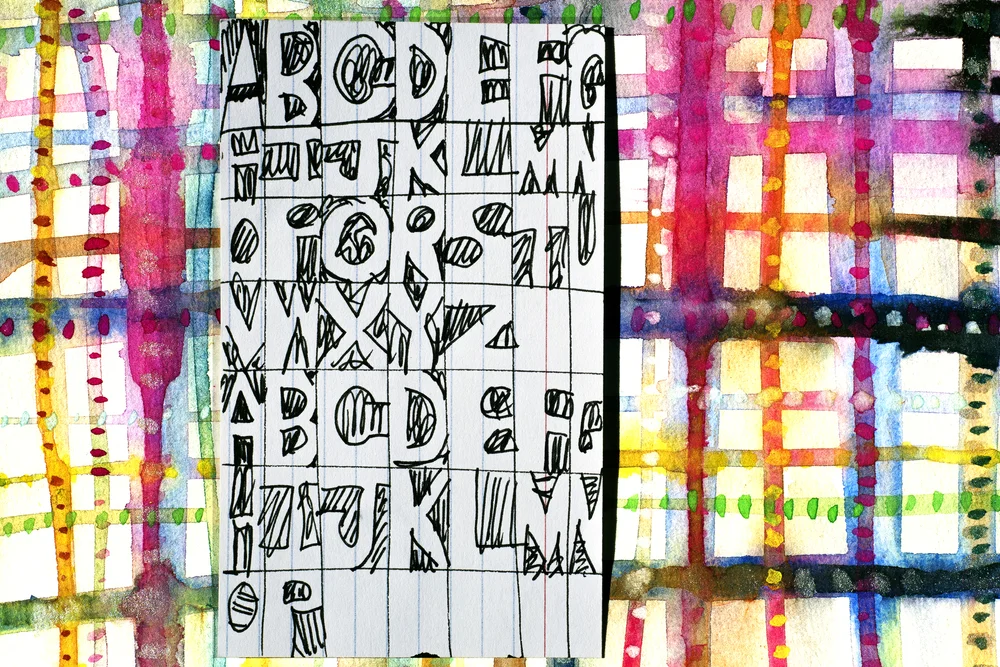 ABCDEFG
HIJKLMN
OPQRSTU
VWXYZ
ABCDEFG
HIJKLMN
OP